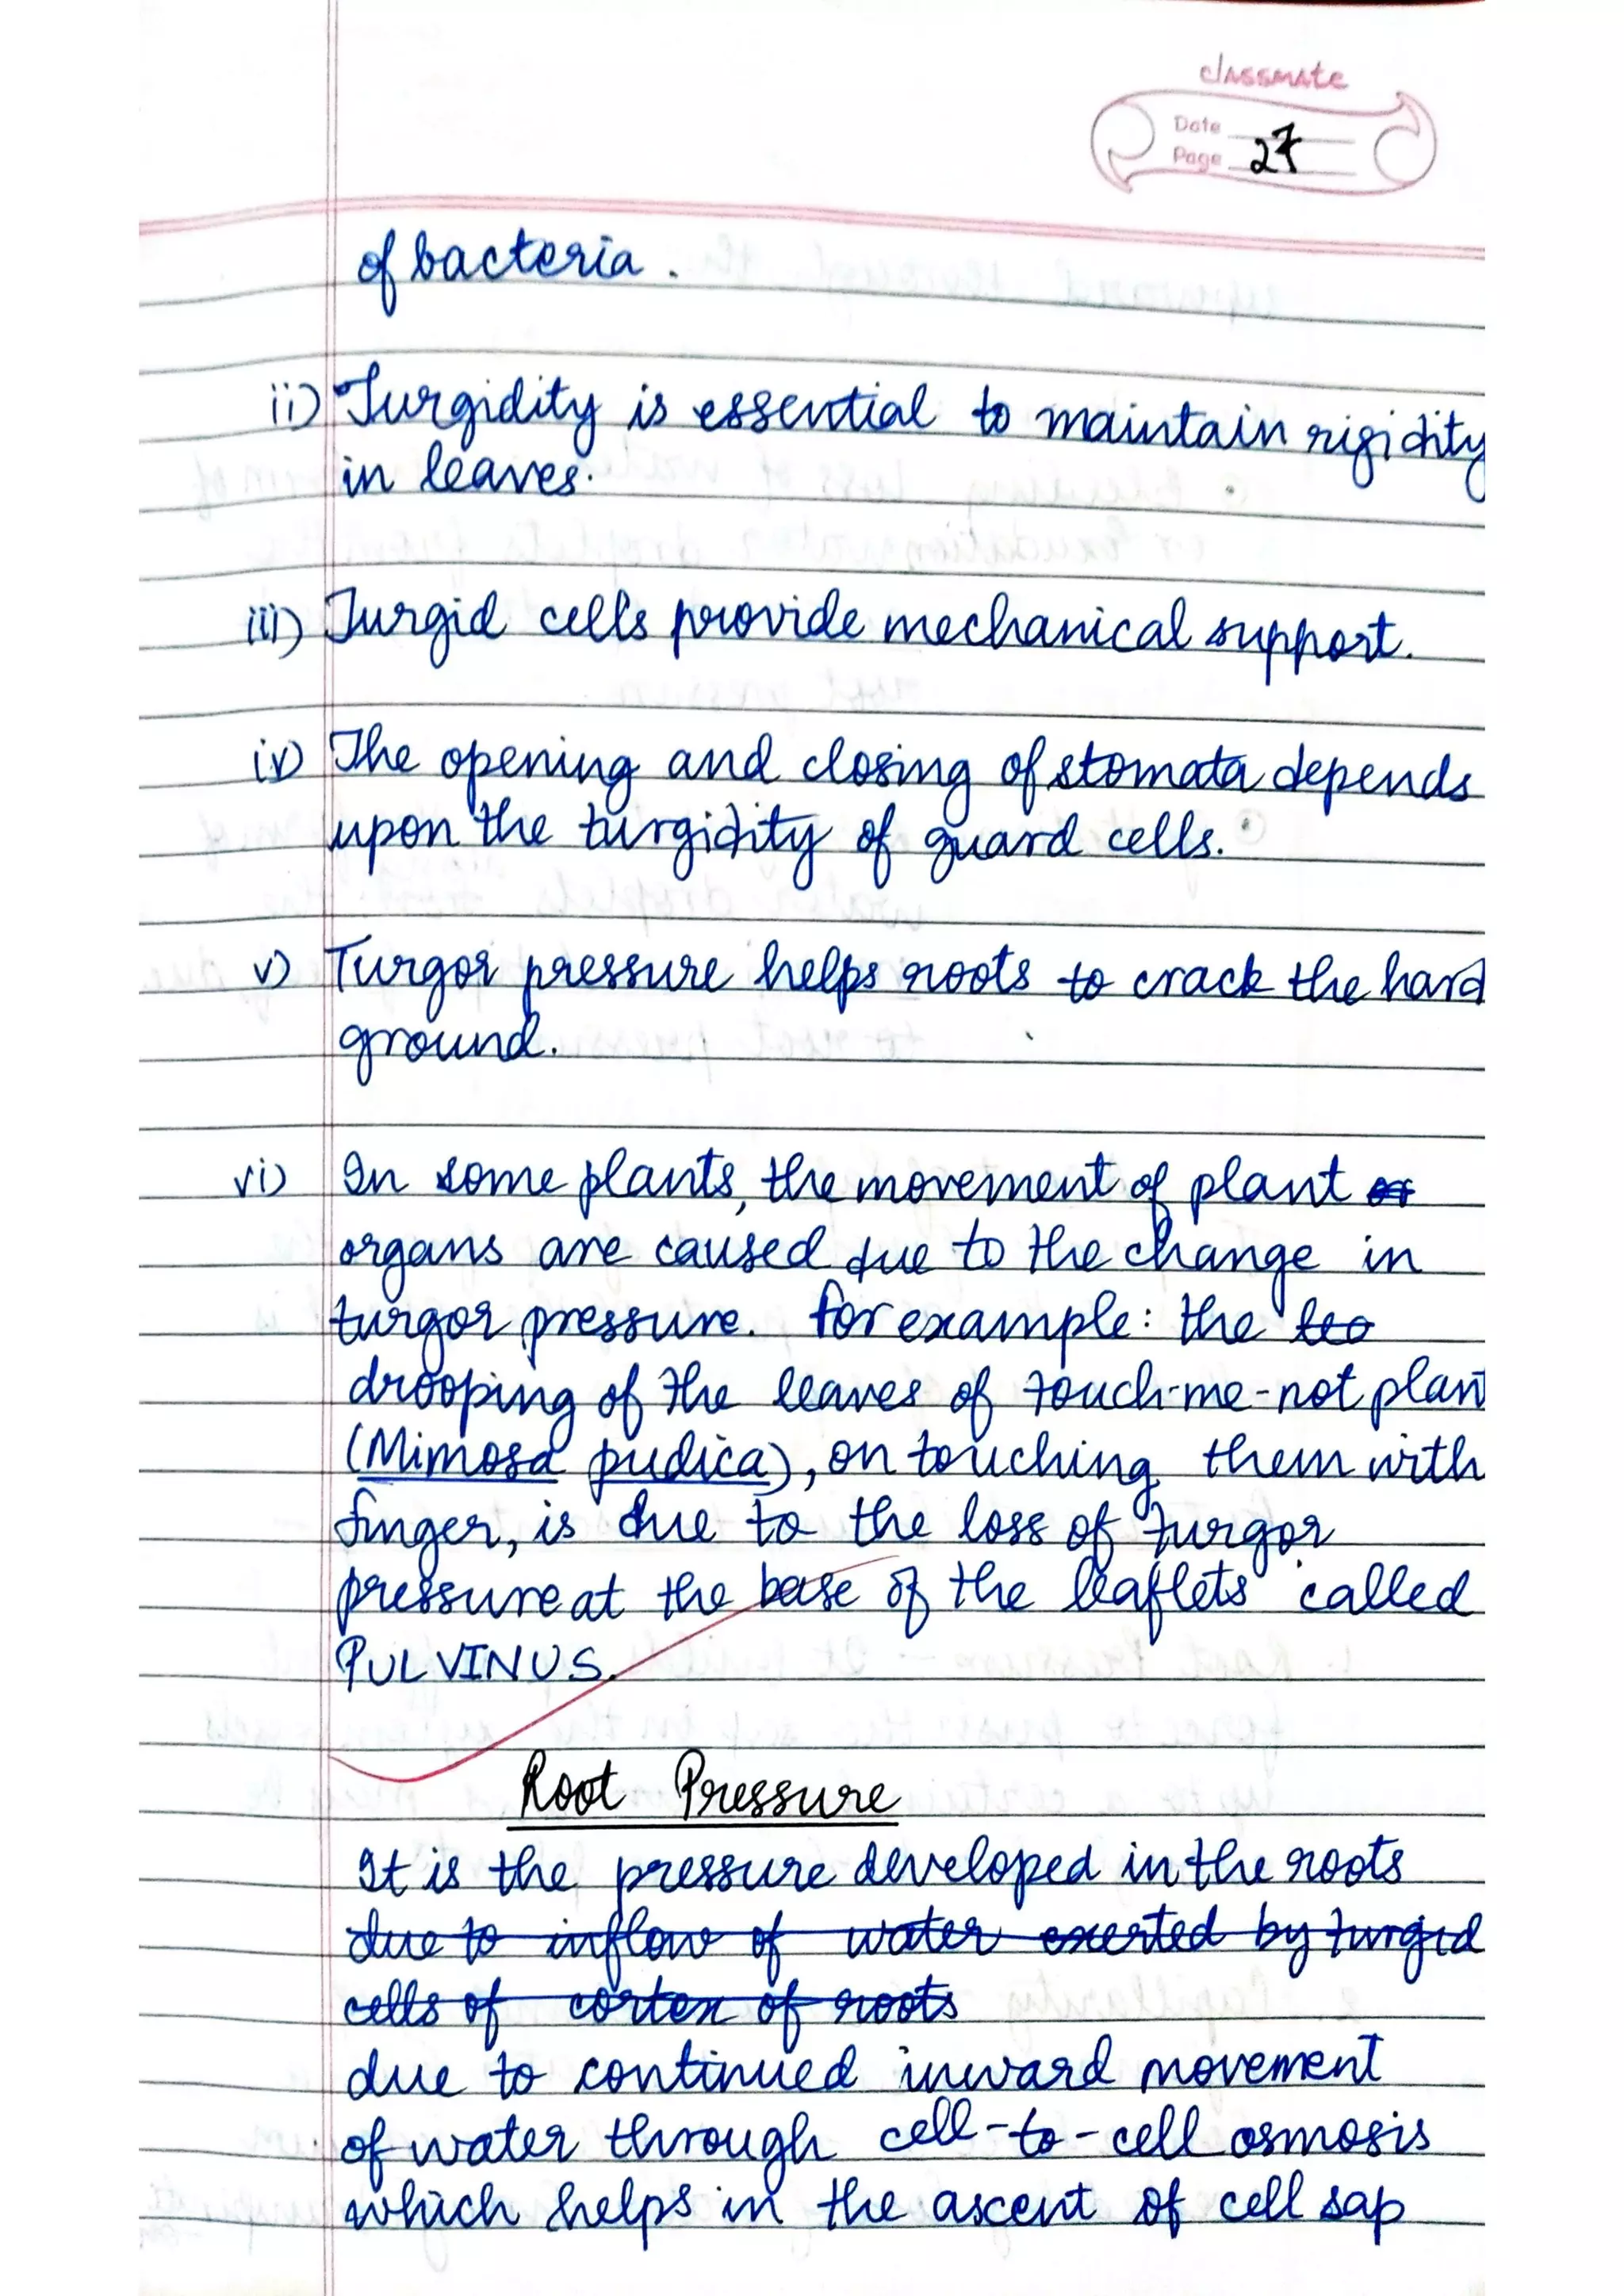 classmate
Date
Page 27
of bacteria.
ii) Turgidity is essential to maintain rigidity
in leaves.
iii) Turgid cells provide mechanical support.
iv) The opening and closing of stomata depends
upon the turgidity of guard cells.
v) Turgor pressure helps roots to crack the hard
ground.
vi) In some plants, the movement of plant or
organs are caused due to the change in
turgor pressure. For example: the lea
drooping of the leaves of touch-me-not plant
(Mimosa pudica), on touching them with
finger, is due to the loss of turgor
pressure at the base of the leaflets called
PULVINUS.
Root Pressure
It is the pressure developed in the roots
due to inflow of water exerted by turgid
cells of cortex of roots
due to continued inward movement
of water through cell-to-cell osmosis
which helps in the ascent of cell sap